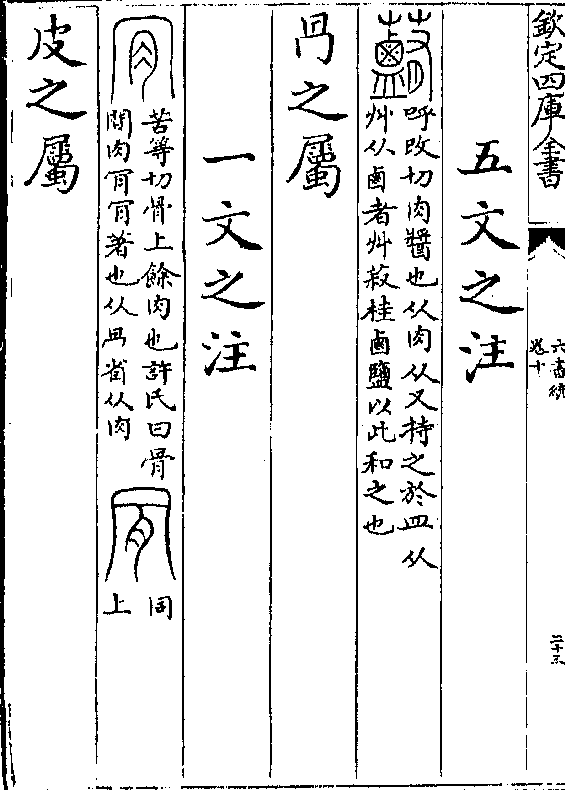 欽定四庫全書
六書統
卷十
二十三
五文之注
呼改切肉醬也从肉从又持之於皿从
艸从鹵者艸菽桂鹵鹽以此和之也
冎之屬
一文之注
苦等切骨上餘肉也許氏曰骨
間肉肎肎著也从冎省从肉
同
上
皮之屬